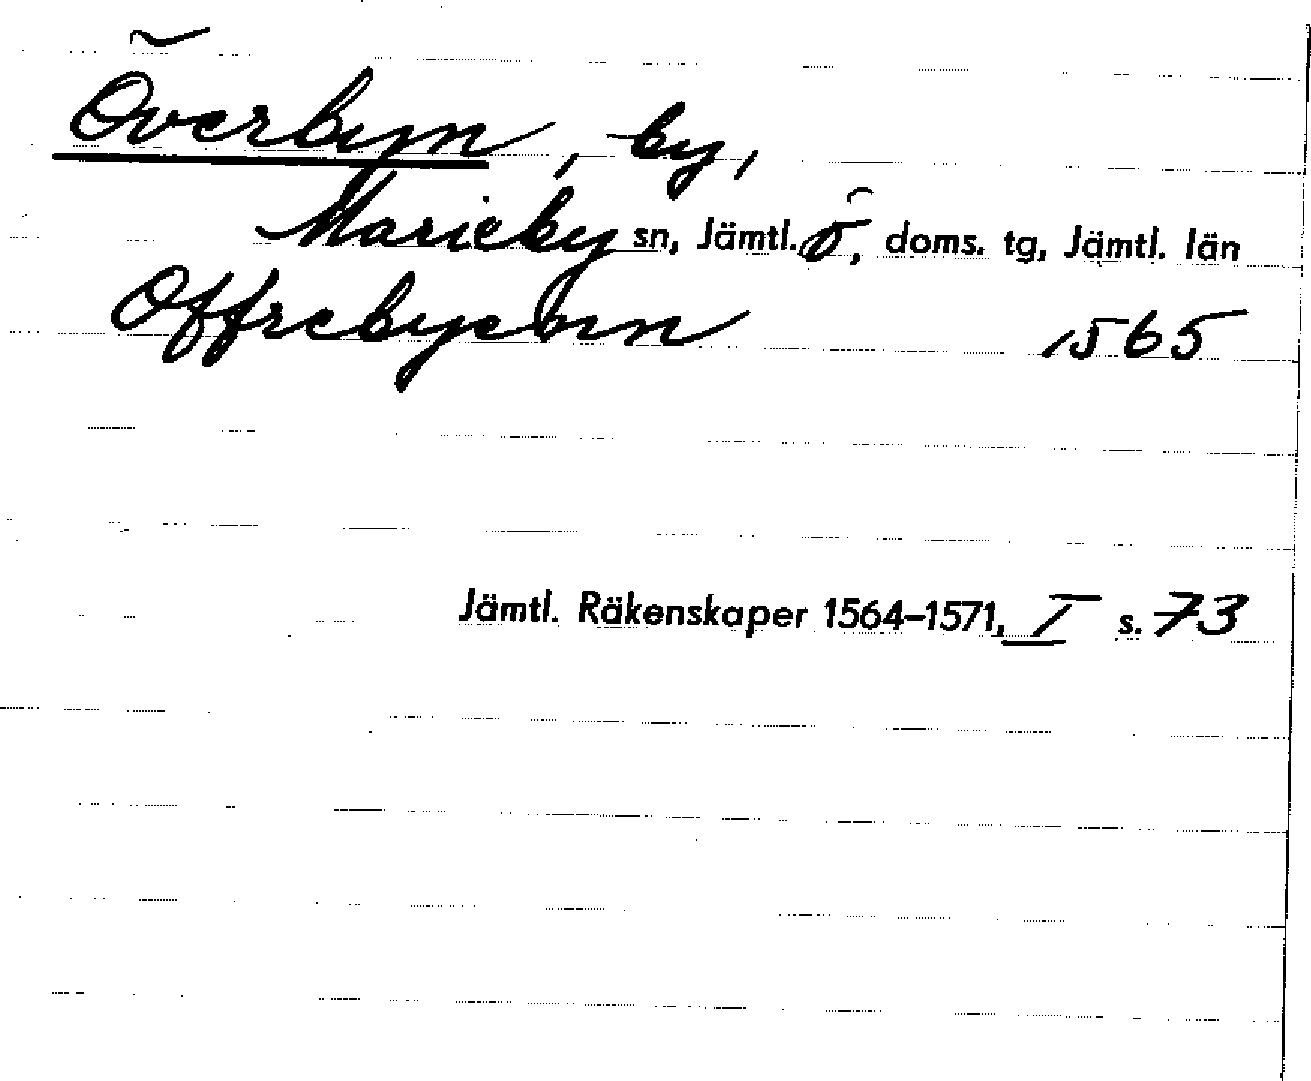 Överbyn, by,
Marieby sn, Jämtl. ö, doms. tg, Jämtl. län
Offrebyenn 1565
Jämtl. Räkenskaper 1564–1571, I s. 73